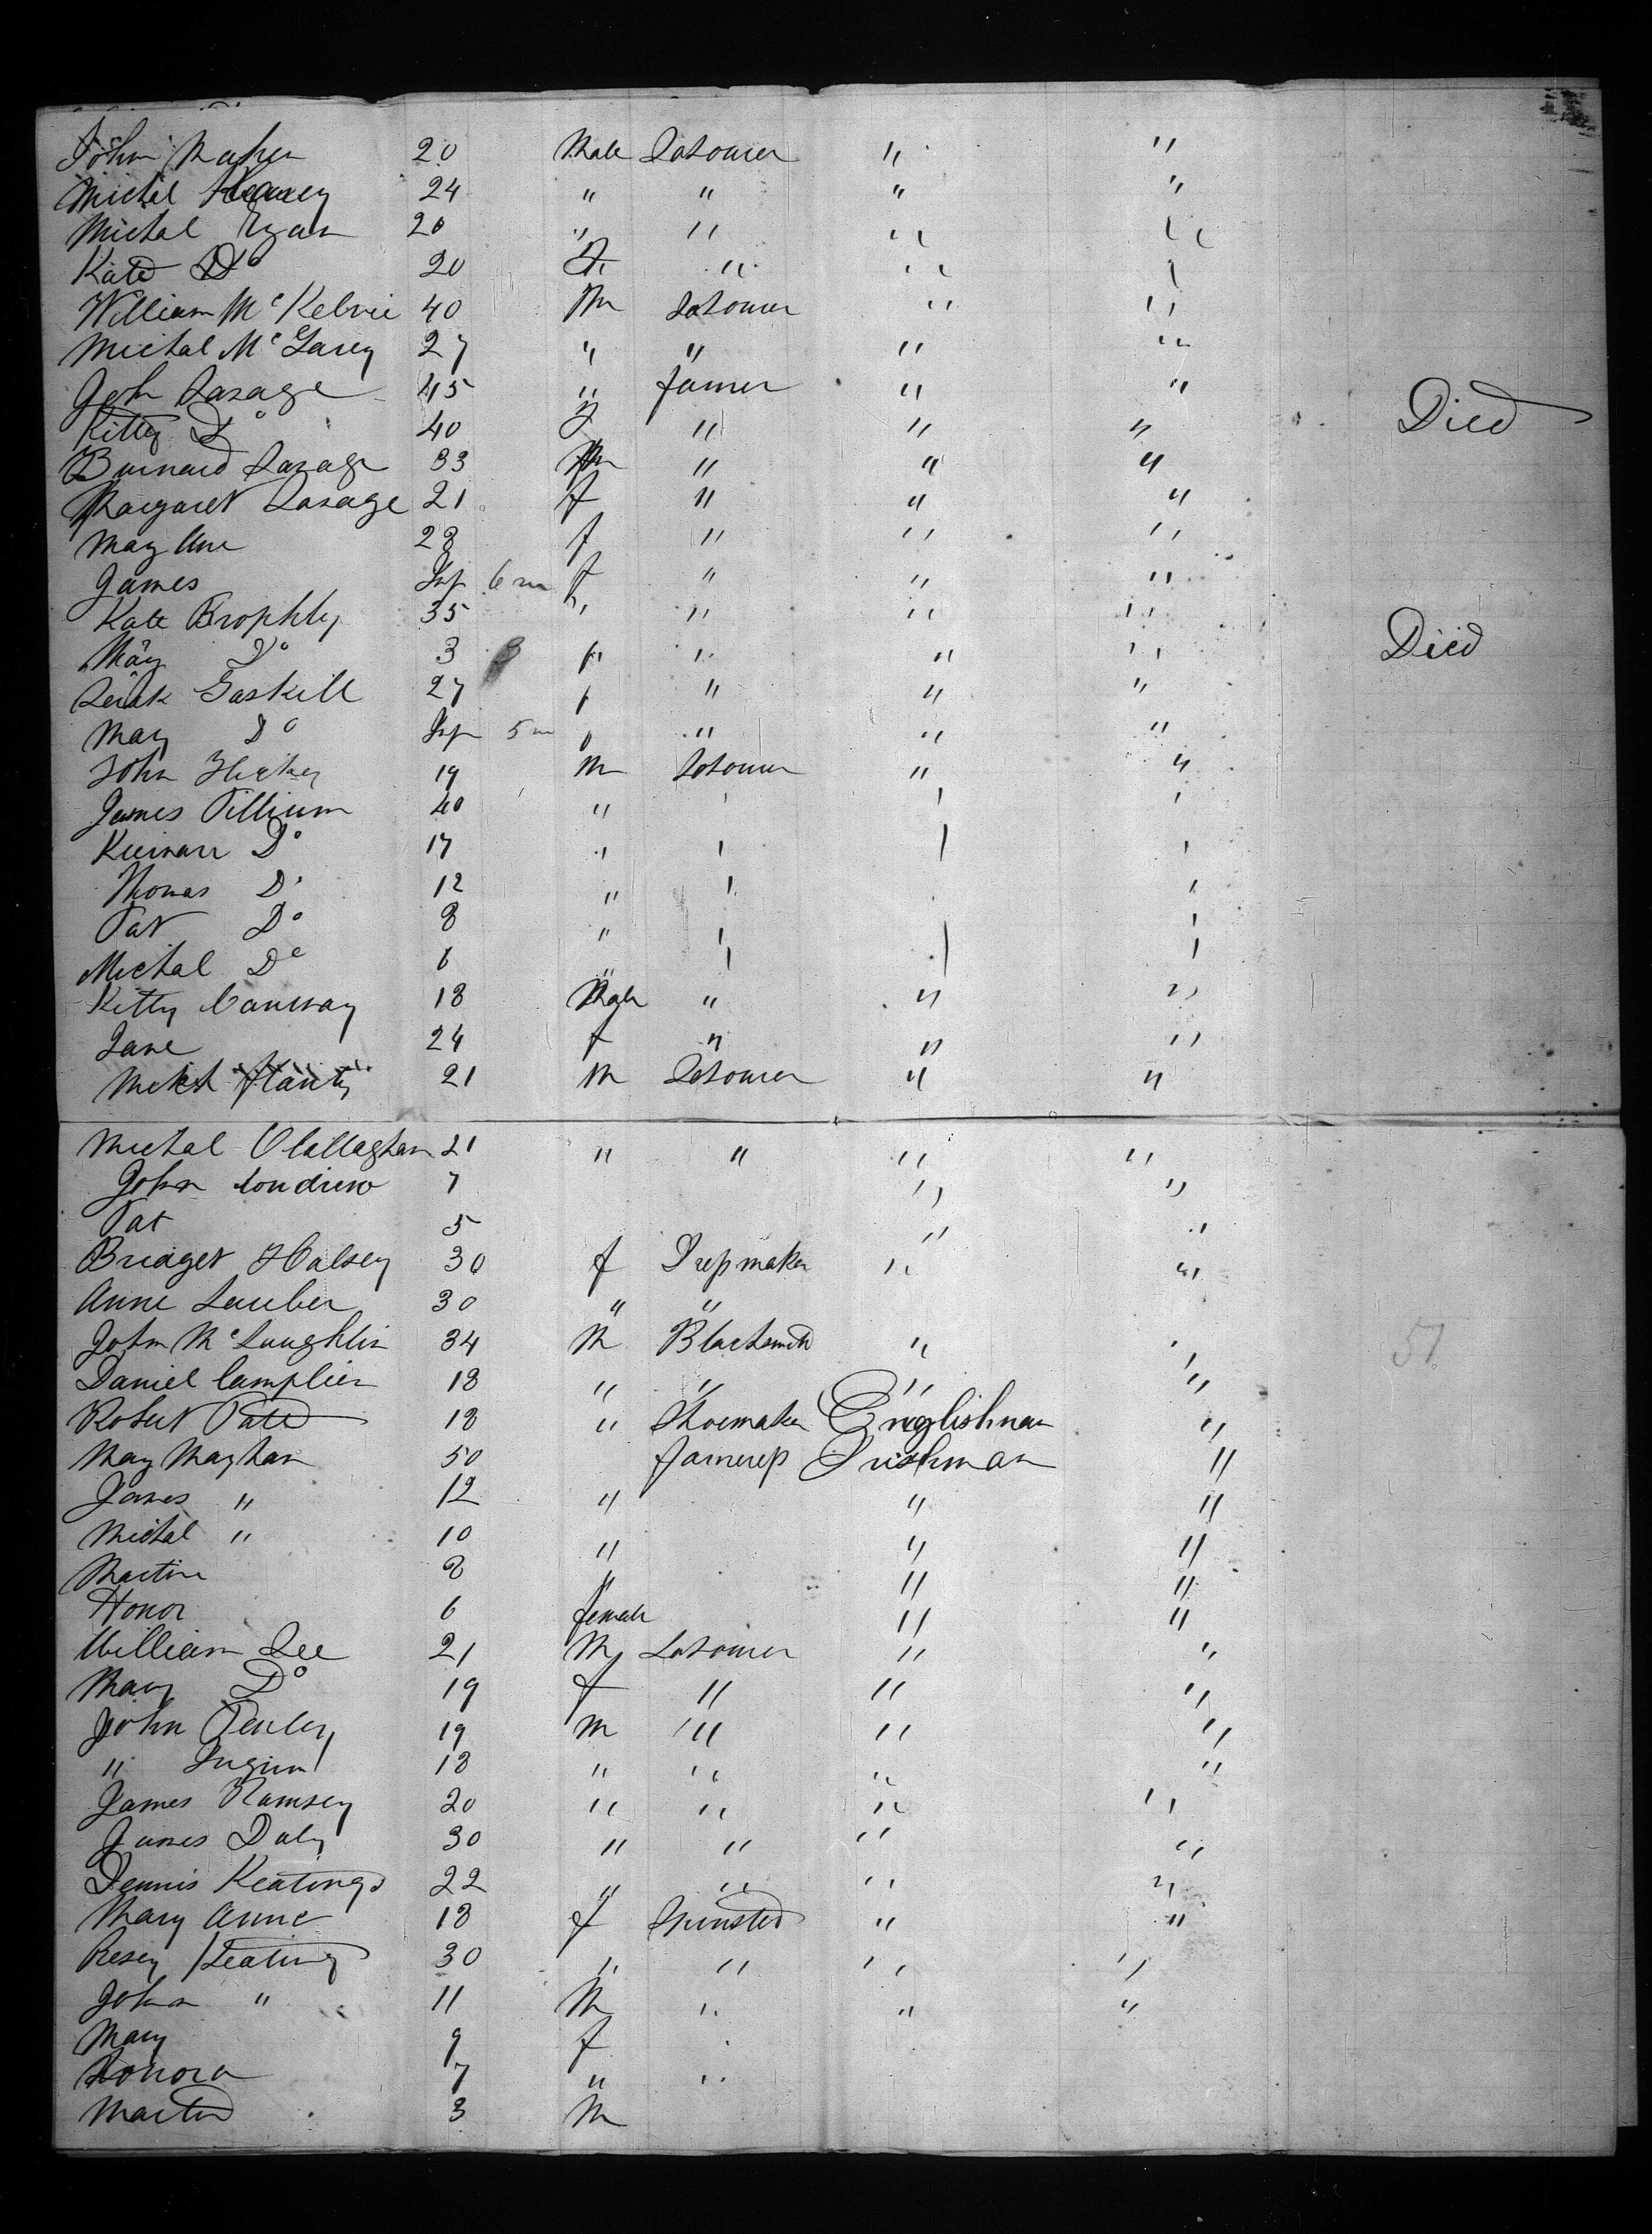 John Maher 20 Male Labourer " "
Michal Heaney 24 " " " "
Michal Egan 20 " " " "
Kate Do 20 F " " "
William McKelvie 40 M Labourer " "
Michal McGarey 27 " " " "
John Savage 45 " Farmer " "
Kitty Do 40 f " " " Died
Burnard Savage 33 M " " "
Margaret Savage 21 f " " "
May Ane 28 f " " "
James Inf 6 m f " " "
Kate Brophhy 35 " " " "
May Do 3 f " " " Died
Gaskill 27 f " " "
May Do Inf 5 m f " " "
John Hickey 19 M Labourer " "
James Pillium 40 " " " "
Do 17 " " " "
Thomas Do 12 " " "
Pat Do 8 " " "
Michal Do 6 " " " "
Kitty Conway 18 Male " " "
Jane 24 f " " "
21 M Labourer " "
Michal OCallaghan 21 " " " "
John Condrew 7 " "
Pat 5 " "
Bridget Halsey 30 f Dressmaker " "
Anne Lauber 30 " "
John McLaughlin 34 M Blacksmith " "
Daniel Camplien 18 " " " "
Robert Pate 18 " Shoemaker Englishman "
May Mayhan 50 Farmeress Irishman "
James " 12 " " "
Michal " 10 " " "
Martin 8 " " "
Honor 6 female " "
William Lee 21 M Labourer " "
Mary Do 19 f " " "
John Penley 19 m " " "
" 18 " " " "
James Ramsey 20 " " " "
James Daly 30 " " " "
Dennis Keatings 22 " " " "
Mary Anne 18 f Spinster " "
Rosey Keating 30 " " " "
John " 11 M " " "
Mary 9 f
Honora 7 " "
Martin 3 M
51